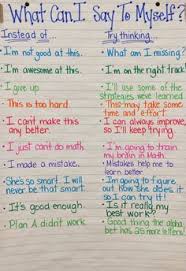 What Can I Say To Myself?
Instead of... Try thinking...
I'm not good at this. What am I missing?
I'm awesome at this. I'm on the right track!
I give up. I'll use some of the
strategies we've learned.
This is too hard. This may take some time
and effort.
I can't make this any better. I can always improve,
so I'll keep trying.
I just can't do math. I'm going to train
my brain in Math.
I made a mistake. Mistakes help me to
learn better.
She's so smart. I will never be that smart. I'm going to figure
out how she does it
so I can try it!
It's good enough. Is it really my
best work?
Plan A didn't work. Good thing the alpha-
bet has 26 more letters.